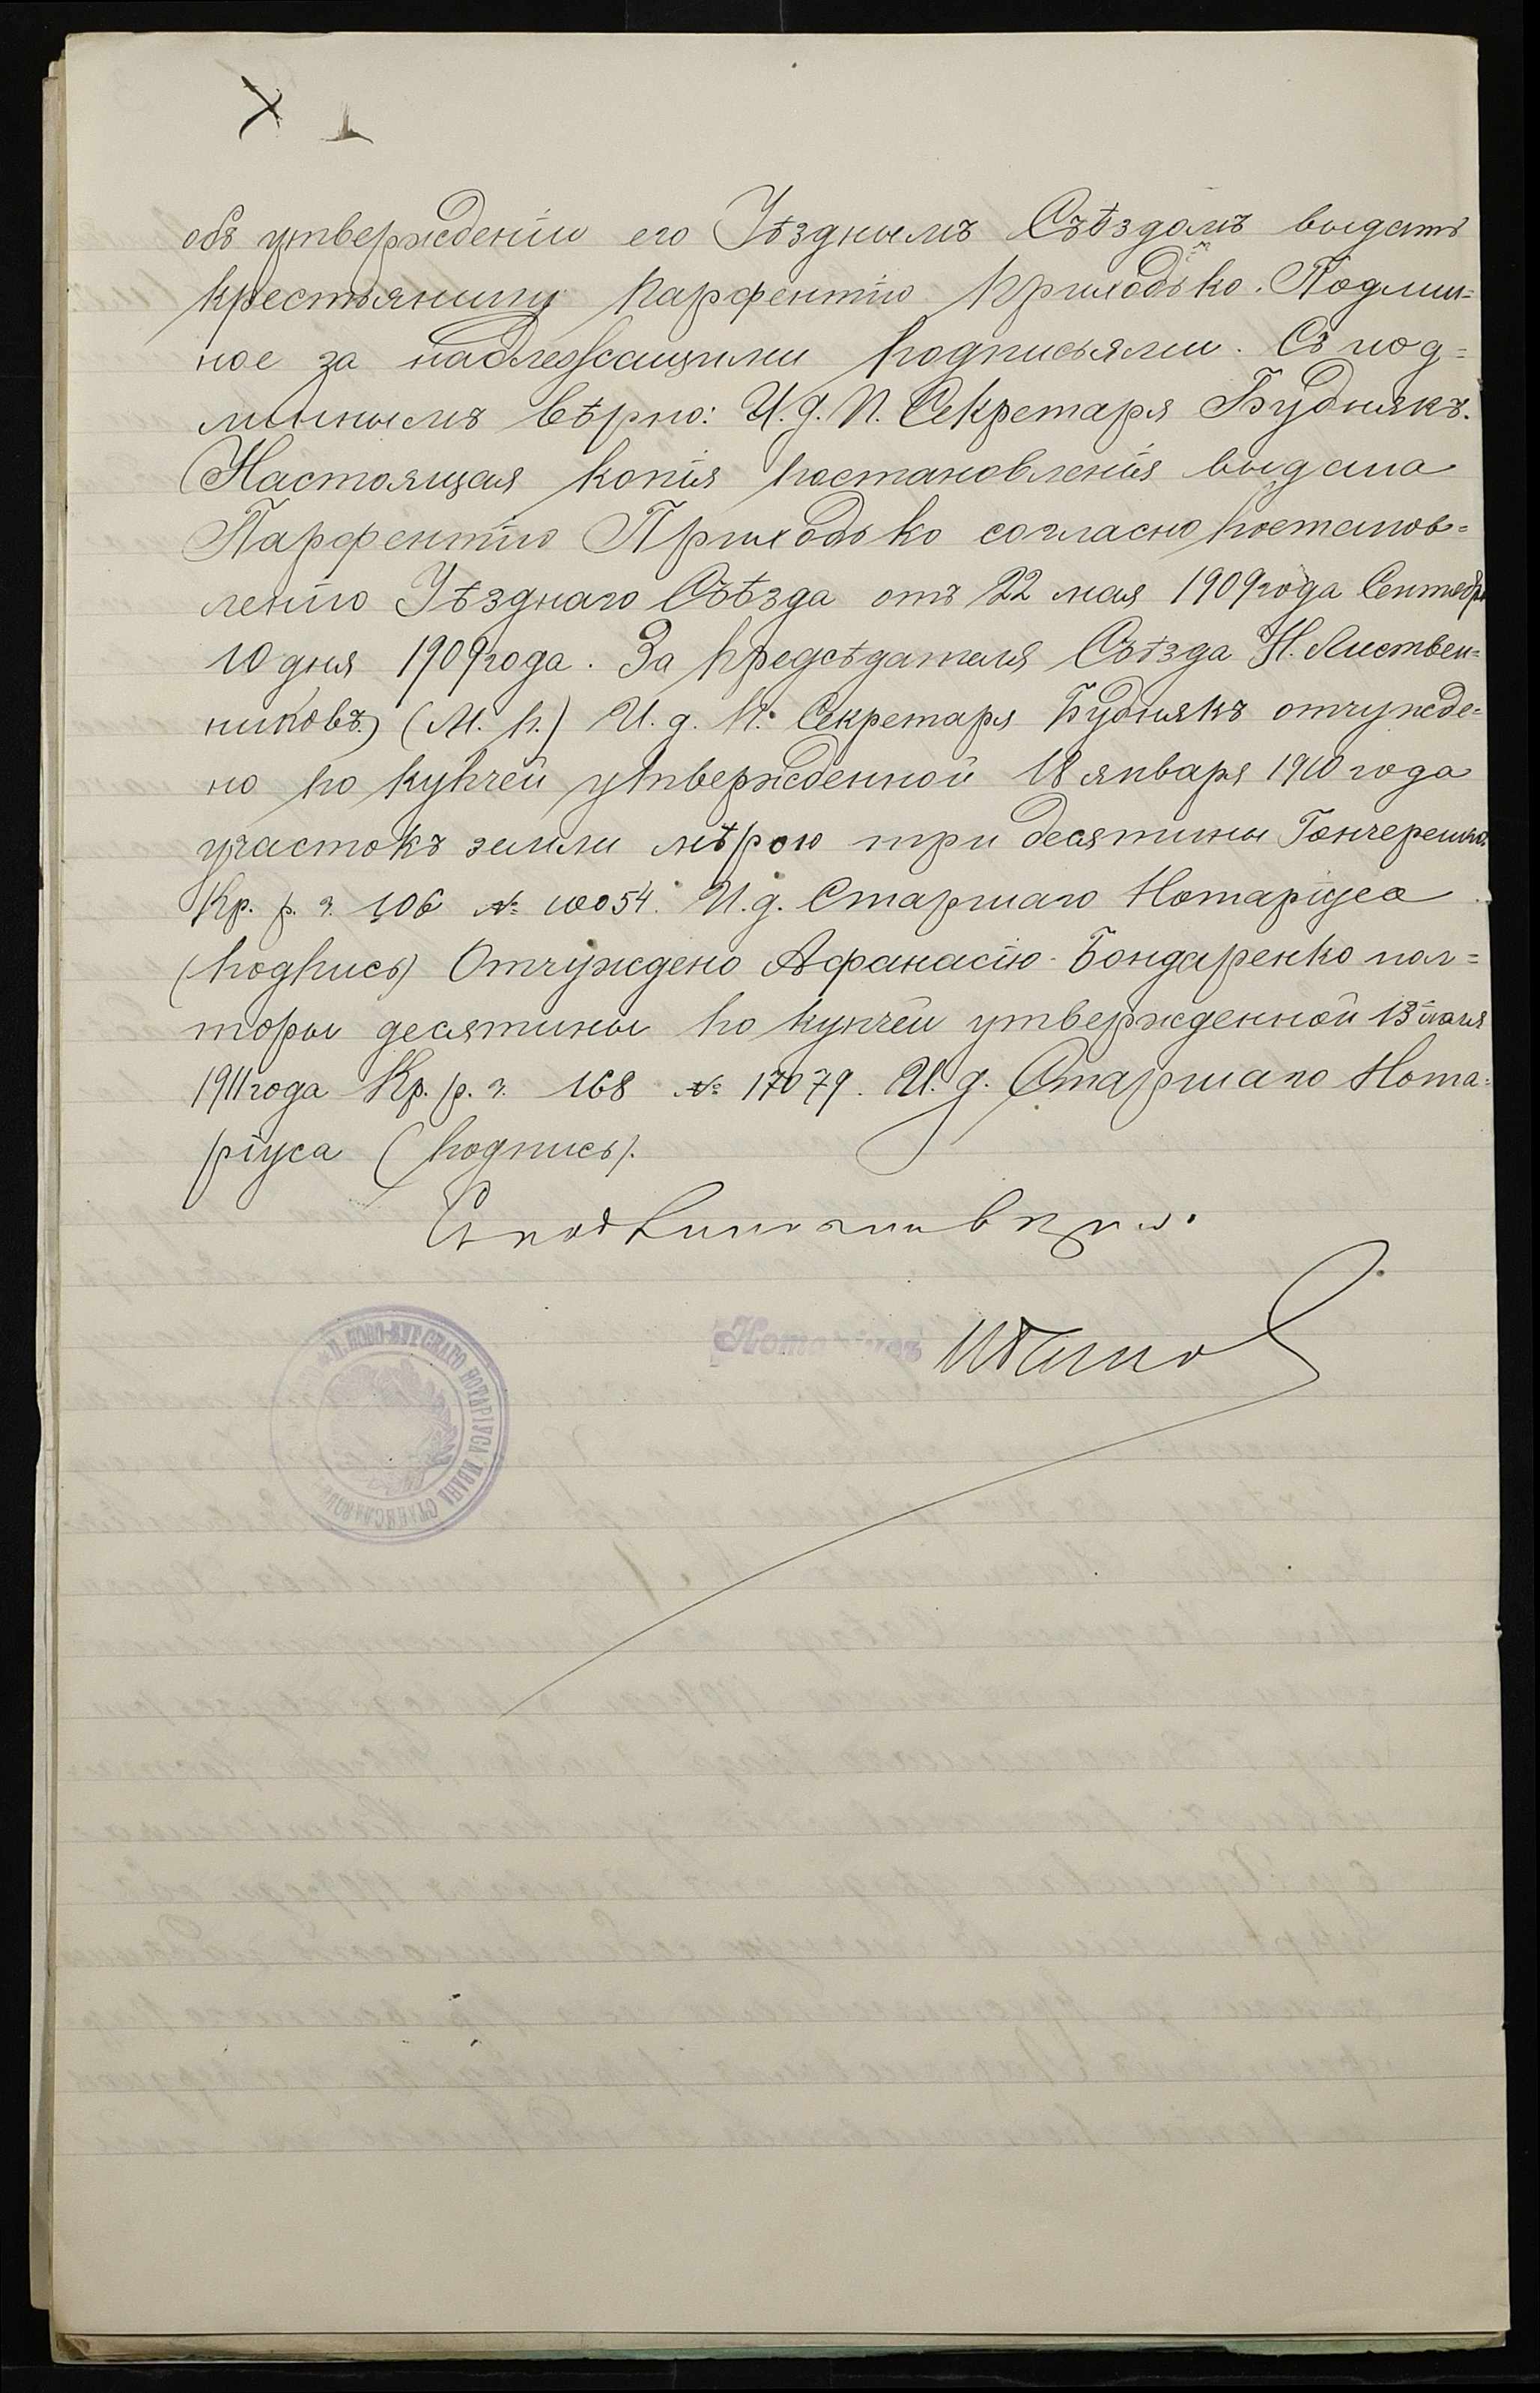 объ утвержденіи его Уѣзднымъ Съѣздомъ выдать
крестьянину Парфентію Приходько. Подлин=
ное за надлежащими подписями. Съ под=
линнымъ вѣрно: И. д. П. Секретаря Буднякъ.
(Настоящая копія постановленія выдана
Парфентію Приходько согласно постанов=
ленію Уѣзднаго Съѣзда отъ 22 мая 1909 года Сентября
10 дня 1909 года. За Предсѣдателя Съѣзда Н. Листвен=
никовъ.) (М. п.) И. д. П. Секретаря Буднякъ отчужде=
но по купчей утвержденной 18 января 1910 года
участокъ земли мѣрою три десятины
Кр. р. г. 106 № 10054. И. д. Старшаго Нотаріуса
(подпись) Отчуждено Афанасію Бондаренко пол=
торы десятины по купчей утвержденной 13
1911 года Кр. р. г. 168 № 17079. И. д. Старшаго Нота=
ріуса (подпись).
Съ подлиннымъ вѣрно:
Нотаріусъ
НОТАРІУСА ИВАНЪ